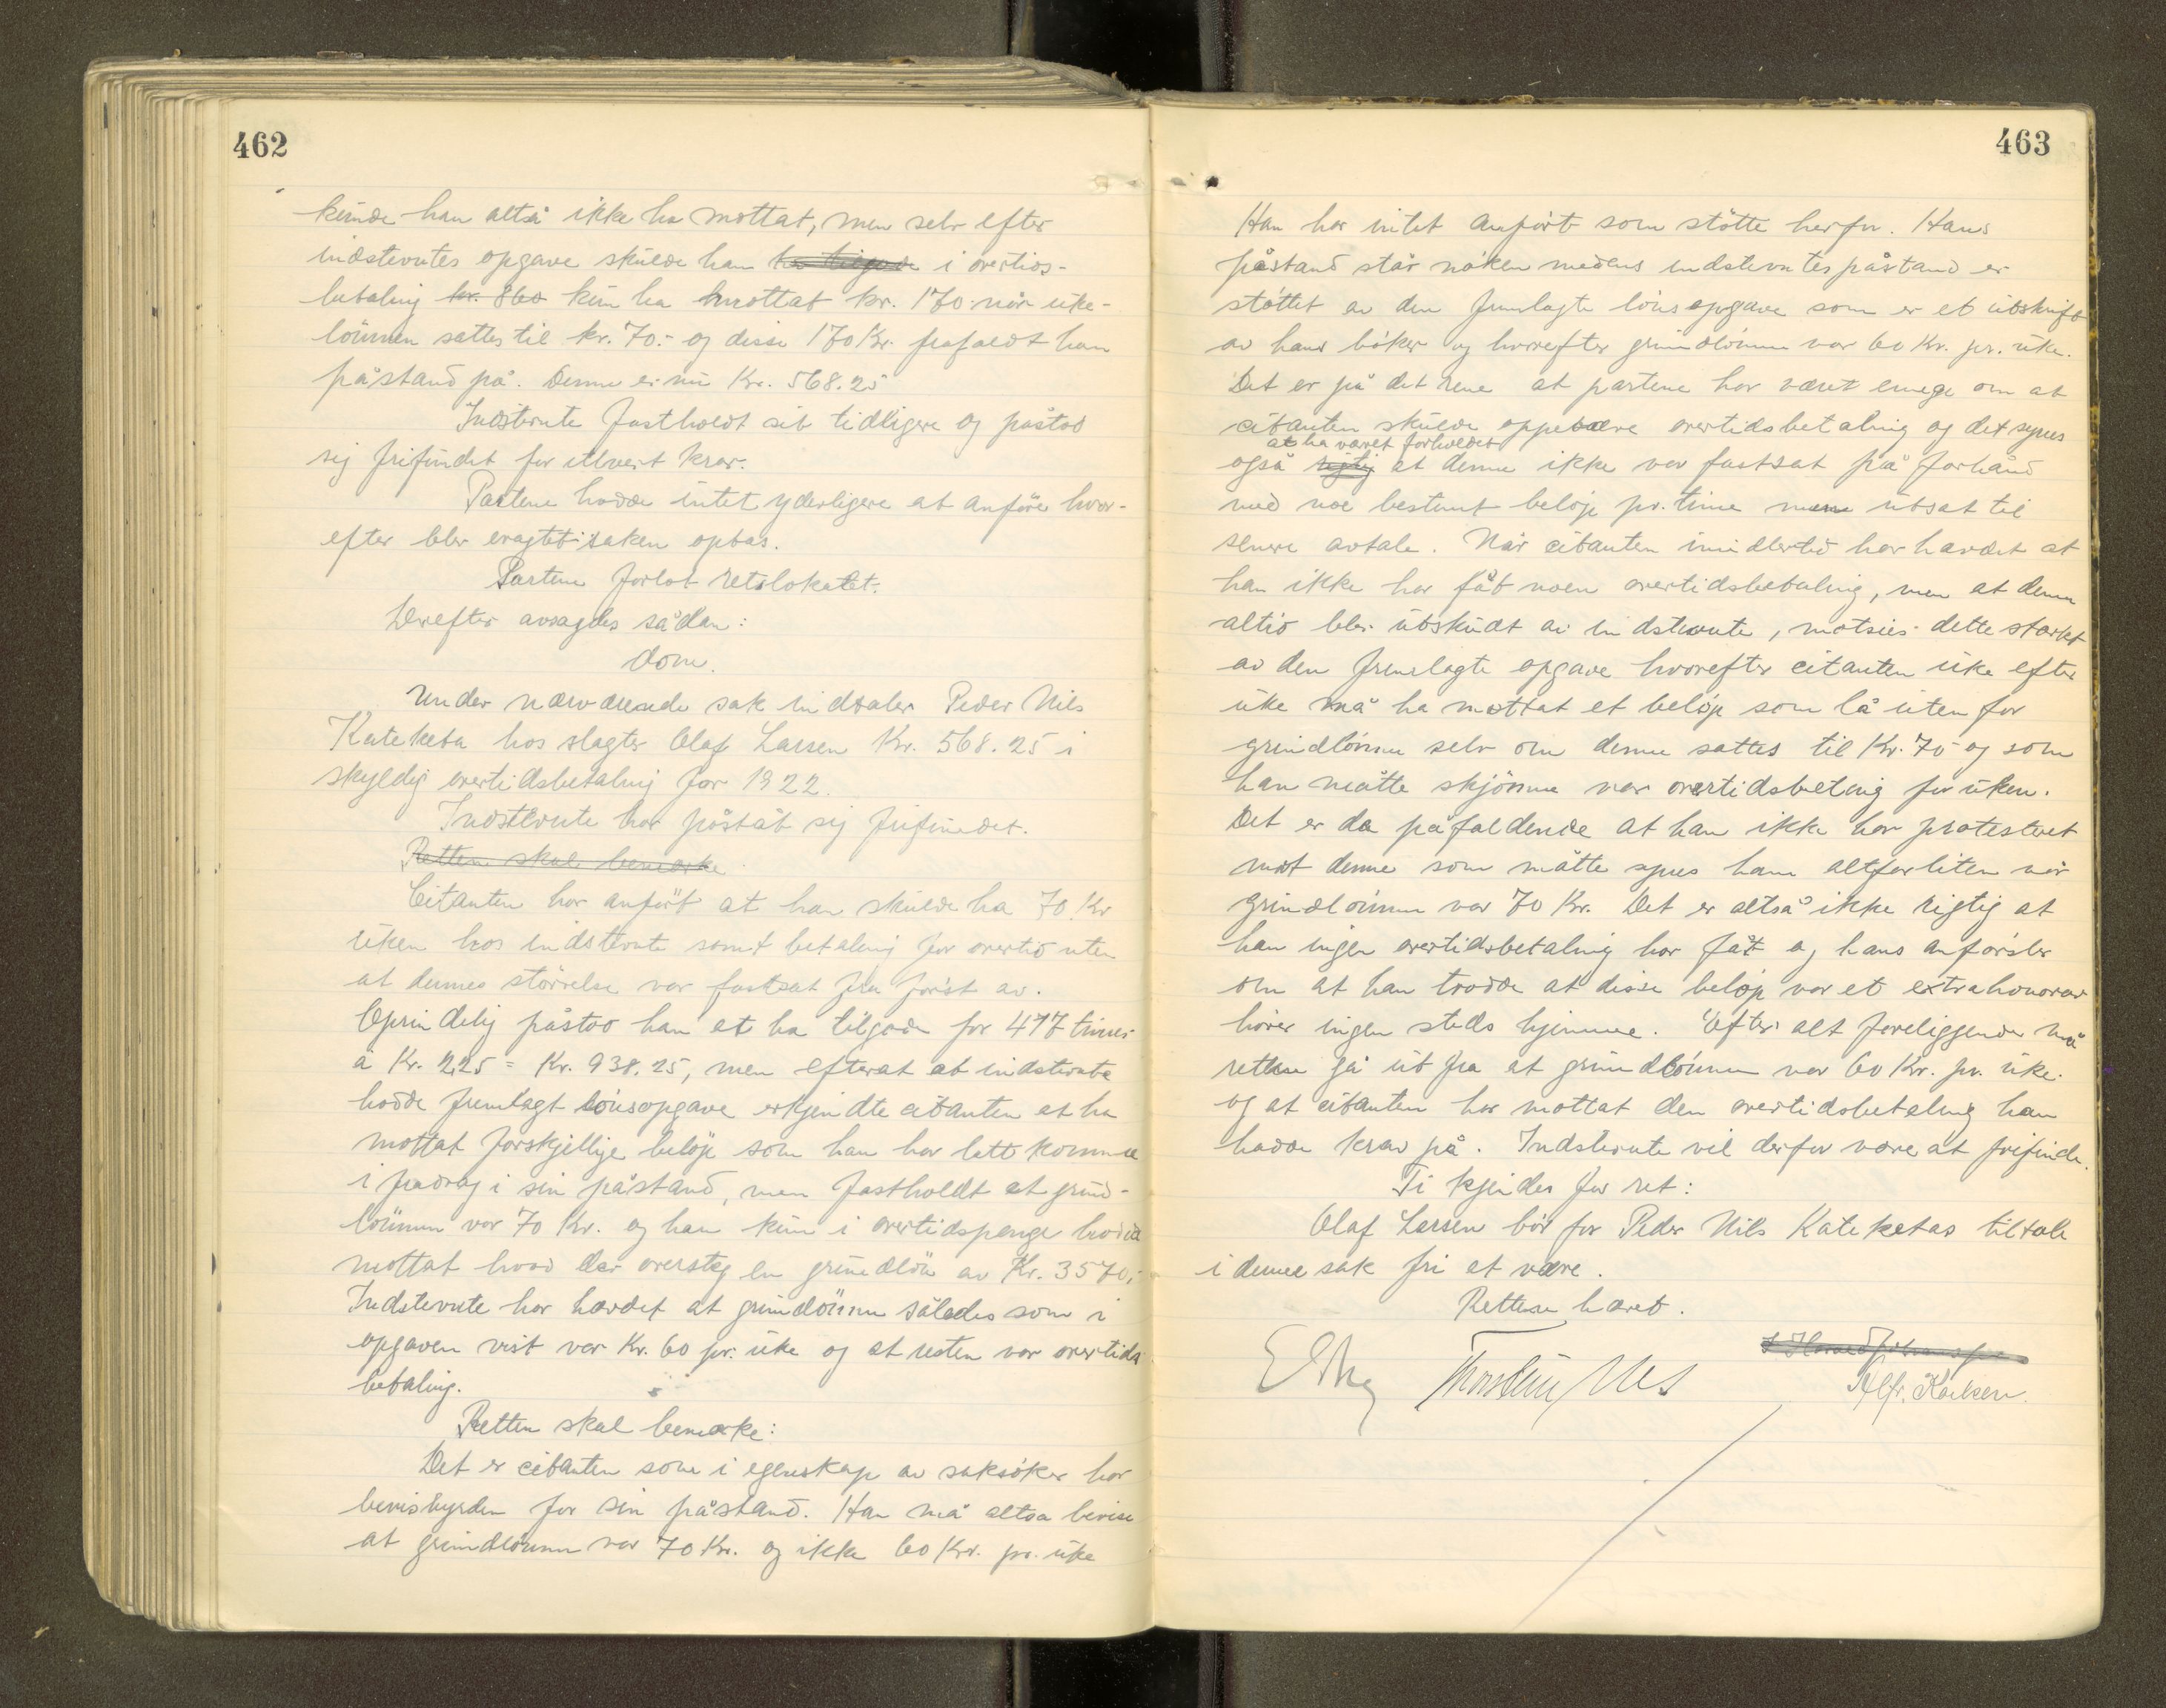 462
kunde han altså ikke ha mottat, men selv efter
indstevntes opgave skulde han ha tilgode i overtids-
betaling kr. 860 kun ha mottat kr. 170 når uke-
lönnen sattes til kr. 70.- og disse 170 Kr. frafaldt han
påstand på. Denne er nu Kr. 568.25
Indstevnte fastholdt sit tidligere og påstod
sig frifundet for ethvert krav.
Partene hadde intet yderligere at anföre hvor-
efter blev eragtet: saken optas.
Partene forlot retslokalet.
Derefter avsagdes sådan:
dom.
Under nærværende sak indtaler Peder Nils
Kateketa hos slagter Olaf Larsen Kr. 568.25 i
skyldig overtidsbetaling for 1922.
Indstevnte har påståt sig frifundet.
Retten skal bemærke
Citanten har anfört at han skulde ha 70 Kr
uken hos indstevnte samt betaling for overtid uten
at dennes störrelse var fastsat fra först av.
Oprindelig påstod han at ha tilgode for 417 timer
á Kr. 2.25 = Kr. 938.25, men efterat at indstevnte
hadde fremlagt lönsopgave erkjendte citanten at ha
mottat forskjellige belöp som han har latt komme
i fradrag i sin påstand, men fastholdt at grund-
lönnen var 70 Kr. og han kun i overtidspenge hadde
mottat hvad der oversteg en grundlön av Kr. 3570,-
Indstevnte har hævdet at grundlönnen således som i
opgaven vist var Kr. 60 pr. uke og at resten var overtids
betaling.
Retten skal bemærke:
Det er citanten som i egenskap av saksöker har
bevisbyrden for sin påstand. Han må altsa bevise
at grundlönnen var 70 Kr. og ikke 60 Kr. pr. uke
463
Han har intet anfört som stötte herfor. Hans
påstand står naken medens indstevntes påstand er
stöttet av den fremlagte lönsopgave som er et utskrift
av hans böker og hvorefter grundlönnen var 60 Kr. pr. uke.
Det er på det rene at partene har været enige om at
citanten skulde oppebære overtidsbetaling og det synes
at ha været forholdet
også rigtig at denne ikke var fastsat på forhånd
med noe bestemt belöp pr. time men utsat til
senere avtale. Når citanten imidlertid har hævdet at
han ikke har fåt noen overtidsbetaling, men at denne
altid blev utskudt av indstevnte, motsies dette stærkt
av den fremlagte opgave hvorefter citanten uke efter
uke må ha mottat et belöp som lå uten for
grundlönnen selv om denne sattes til Kr. 70 og som
han måtte skjönne var overtidsbetaling for uken.
Det er da påfaldende at han ikke har protestert
mot denne som måtte synes ham altfor liten når
grundlönnen var 70 Kr. Det er altså ikke rigtig at
han ingen overtidsbetaling har fåt og hans anförsler
om at han trodde at disse belöp var et extrahonorar
hörer ingen steds hjemme. Efter alt foreliggende må
retten gå ut fra at grundlönnen var 60 Kr. pr. uke
og at citanten har mottat den overtidsbetaling han
hadde krav på. Indstevnte vil derfor være at frifinde.
Ti kjendes for ret:
Olaf Larsen bör for Peder Nils Kateketas tiltale
i denne sak fri at være.
Retten hævet.
Thorstein Nes
Alfr. Karlsen.